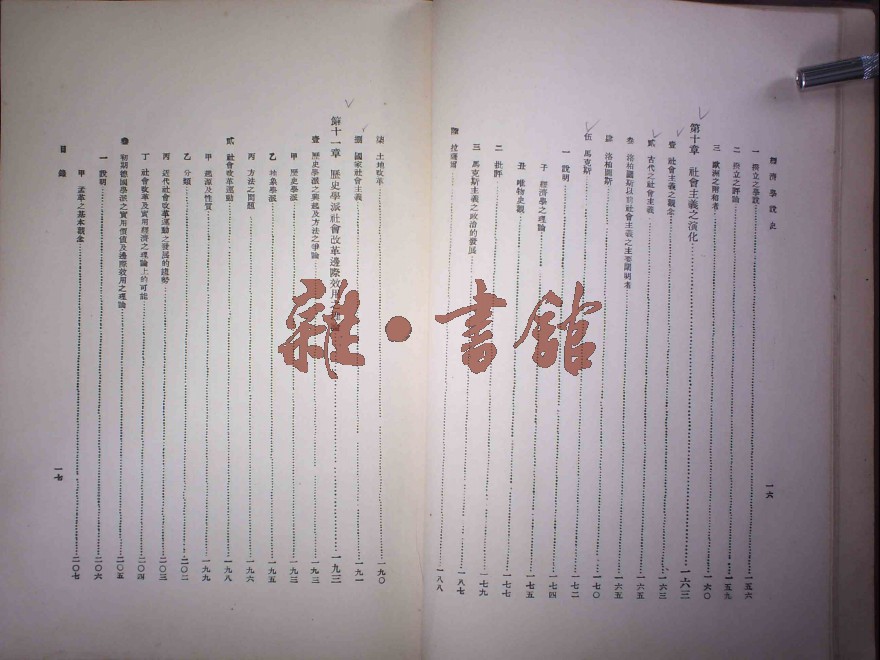 經濟學說史
一 揭立之學說 一五六
二 揭立之評論 一五九
三 歐洲之附和者 一六〇
第十章 社會主義之演化 一六三
壹 社會主義之觀念 一六三
貳 古代之社會主義 一六五
叁 洛柏圖斯以前社會主義之主要闡明者 一六五
肆 洛柏圖斯 一七〇
伍 馬克斯 一七二
一 說明 一七四
子 經濟學之理論
丑 唯物史觀 一七五
二 批評 一七七
三 馬克斯主義之政治的發展 一七九
陸 拉薩爾 一八七
一八八
一六
柒 土地改革 一九〇
捌 國家社會主義 一九一
第十一章 歷史學派社會改革邊際效用 一九三
壹 歷史學派之興起及方法之爭論 一九三
甲 歷史學派 一九三
乙 抽象學派 一九五
丙 方法之問題 一九六
貳 社會改革運動 一九八
甲 起源及性質 一九九
乙 分類 二〇二
丙 近代社會改革運動之發展的趨勢 二〇三
丁 社會改革及實用經濟之理論上的可能 二〇四
叁 初期德國學派之實用價值及邊際效用之理論 二〇五
一 說明 二〇六
甲 孟革之基本觀念 二〇七
目錄
一七
雜·書館